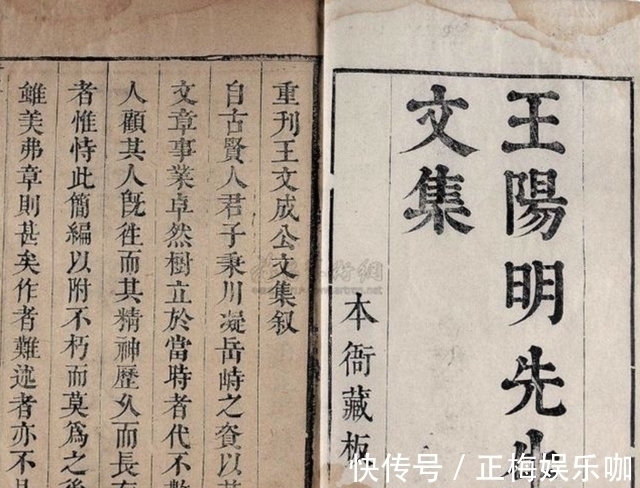 王陽明先生
文集
本衙藏板
重刊王文成公文集叙
自古賢人君子秉川凝岳峙之資以
文章事業卓然樹立於當時者代不數
人顧其人旣徃而其精神歷久而長
者惟恃此簡編以附不朽而莫為之後
雖美弗章則甚矣作者難述者亦不
快传号 / 正梅娱乐咖